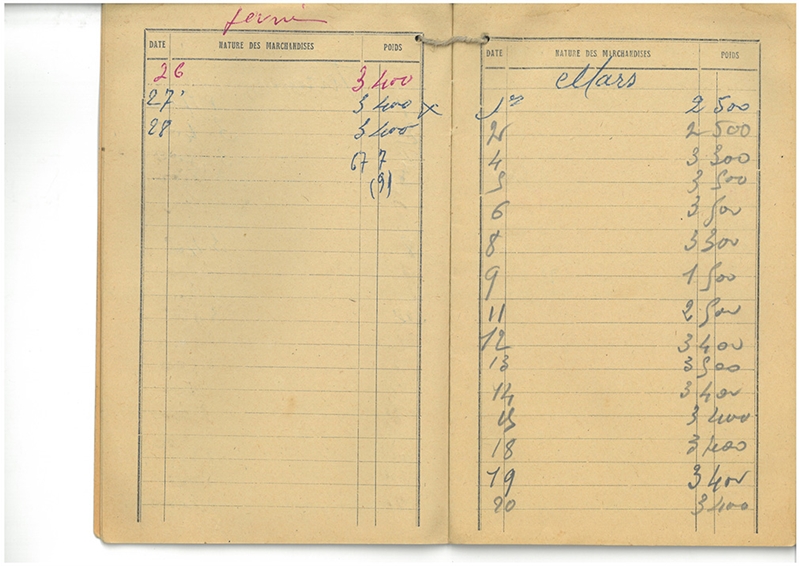 fevrié
DATE NATURE DES MARCHANDISES POIDS
26 3 400
27 3 400 x
28 3 400
67 7
(9)
DATE NATURE DES MARCHANDISES POIDS
Mars
1er 2 500
2 2 500
4 3 300
5 3 500
6 3 500
8 3 300
9 1 500
11 2 500
12 3 400
13 3 500
14 3 400
15 3 400
18 3 400
19 3 400
20 3 400